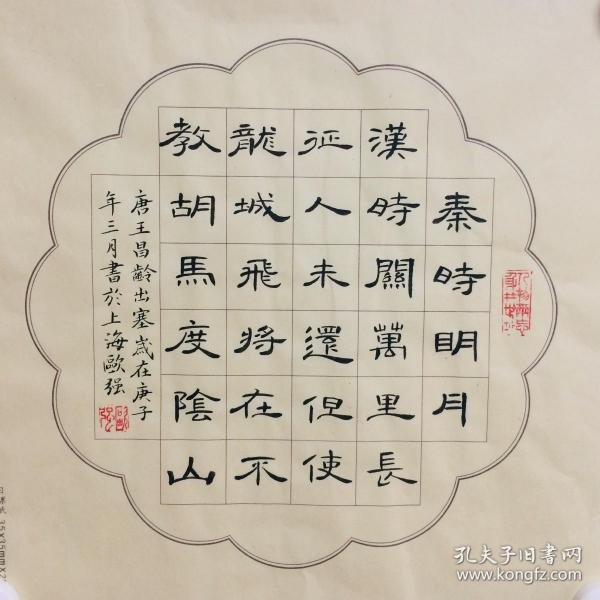 秦時明月
漢時關萬里長
征人未還但使
龍城飛將在不
教胡馬度陰山
唐王昌齡出塞歲在庚子
年三月書於上海歐强
35x35mmx2
孔夫子旧书网
www.kongfz.com